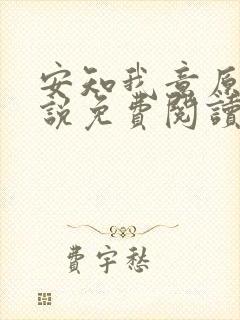 安知我意原
說免費閱讀
費宇愁